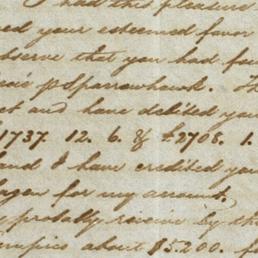 I had this pleasure
ed your esteemed favor
observe that you had fou
p Sparrowhawk. Th
ct and have debited you
1737. 12. 6. & £2708. 1.
and I have credited you
for my account,
probably receive by th
about $5.200. f